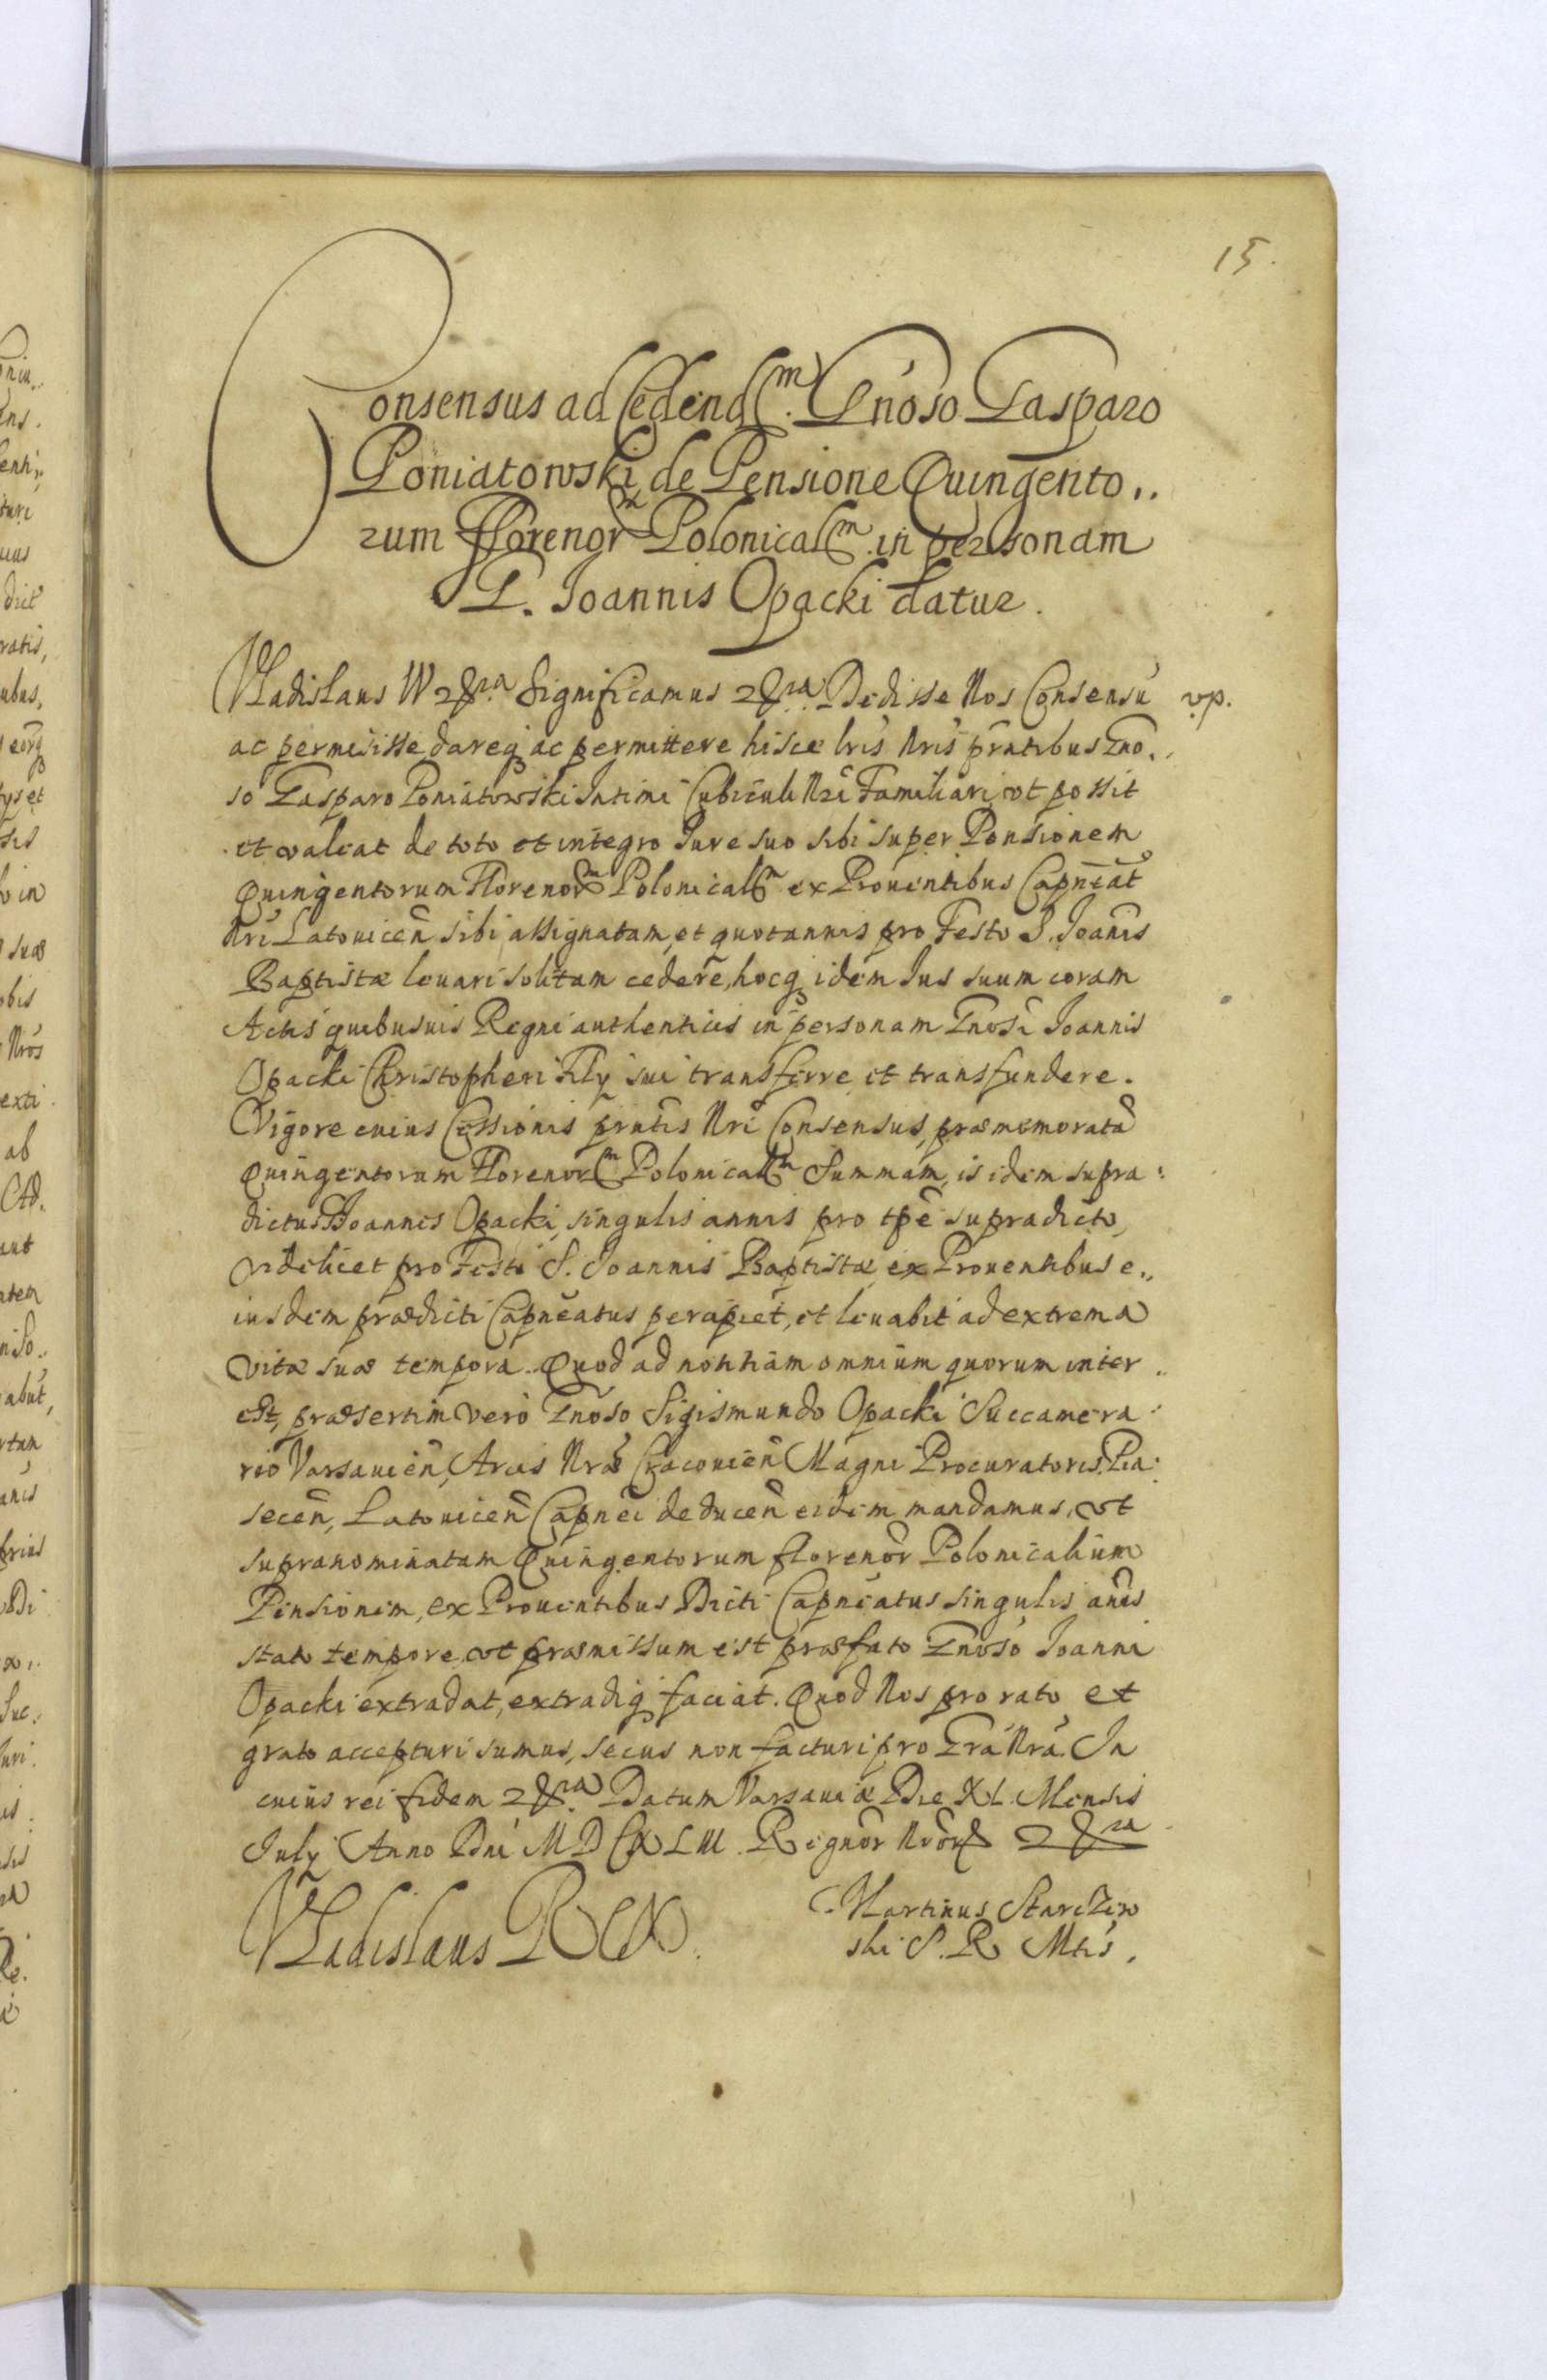 15.
Consensus ad Cedendm. Gnoso Gasparo
Poniatowski de Pensione Quingento,,
rum Florenorm Polonicalm in personam
G. Joannis Opacki datur.
Vladislaus IV etc. Significamus etc. Dedisse Nos Consensũ vp.
ac permisisse dareq ac permittere hisce lris nris prntibus Gno,,
so Gasparo Poniatowski Intimi Cubiculi Nri Familiari, vt possit
et valeat de toto et integro Iure suo sibi super Pensionem
Quingentorum Florenorm Polonicalm ex Prouentibus Capneat
Nri Latouicen sibi assignatam, et quotannis pro Festo S. Joanis
Baptistæ leuari solitam cedere, hocq idem Ius suum coram
Actis quibusuis Regni authenticis in personam Gnosi Joannis
Opacki Christopheri Fily sui transferre et transfundere.
Vigore cuius Cessionis prntis Nri Consensus, præmemoratã
Quingentorum Florenorm Polonicalm Summam, is idem supra:
dictus Joannes Opacki, singulis annis pro tpe supradicto,
videlicet pro Festo S. Joannis Baptistæ ex Prouentibus e,,
iusdem prædicti Capneatus percipiet, et leuabit ad extrema
vitæ suæ tempora. Quod ad notitiam omnium quorum inter,,
est, præsertim vero Gnoso Sigismundo Opacki Succamera:
rio Varsauien, Arcis Nræ Cracouien Magni Procuratoris, Pia:
secen, Latouicen Capnei deducen eidem mandamus, vt
supranominatam Quingentorum florenor Polonicalium
Pensionem, ex Prouentibus Dicti Capneatus singulis anis
stato tempore, vt præmissum est præfato Gnoso Joanni
Opacki extradat, extradiq faciat. Quod Nos pro rato et
grato accepturi sumus, secus non facturi pro Gra Nra. In
cuius rei fidem etc. Datum Varsauiæ Die XI. Mensis
July Anno Dni MDCXLIII. Regnor Nror etc.
Vladislaus Rex.
Martinus Starczew
ski S. R Mtis.